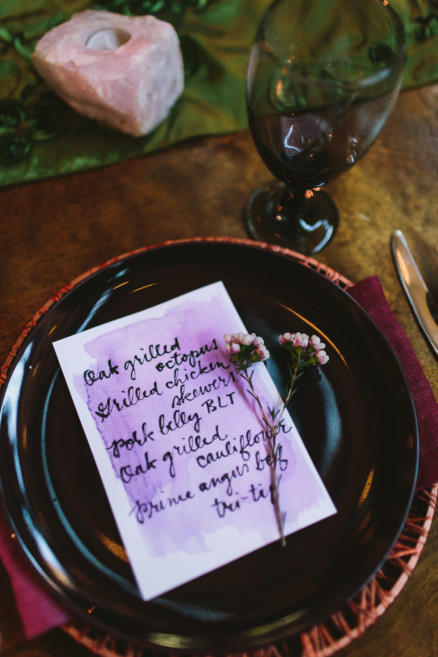 Oak grilled
octopus
Grilled chicken
skewers
pork belly BLT
Oak grilled
cauliflower
prime angus beef
tri-ti